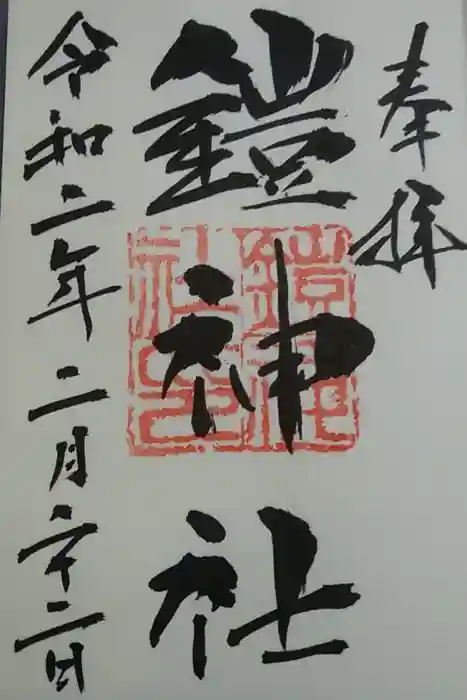 奉拝
鎧神社
令和二年二月二十二日